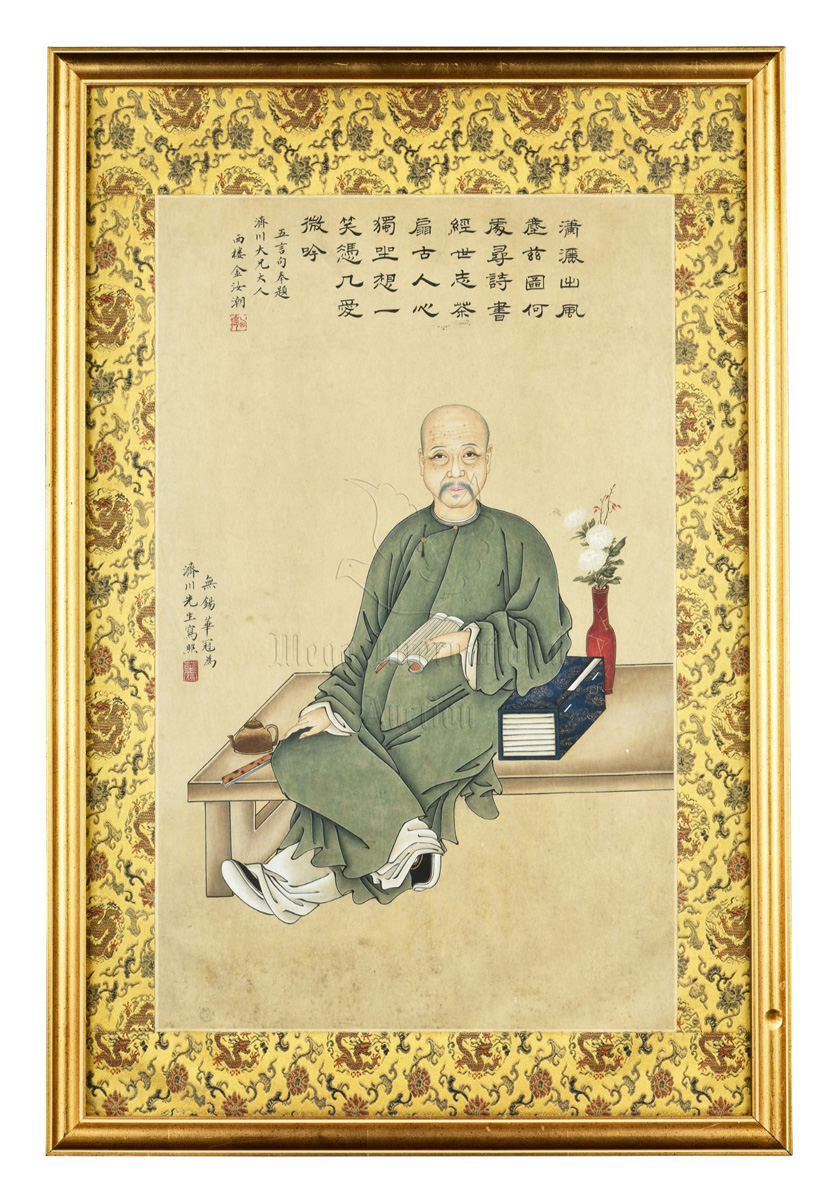 瀟灑出風
塵茲圖何
處尋詩書
經世志茶
扇古人心
獨坐想一
笑憑几愛
微吟
五言句奉題
濟川大兄大人
雨樓金汝潮
無錫華冠為
濟川先生寫照
Mega International
Auction